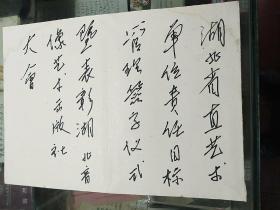 湖北省直艺术
单位责任目标
管理签字仪式
暨表彰湖北音
像艺术出版社
大会